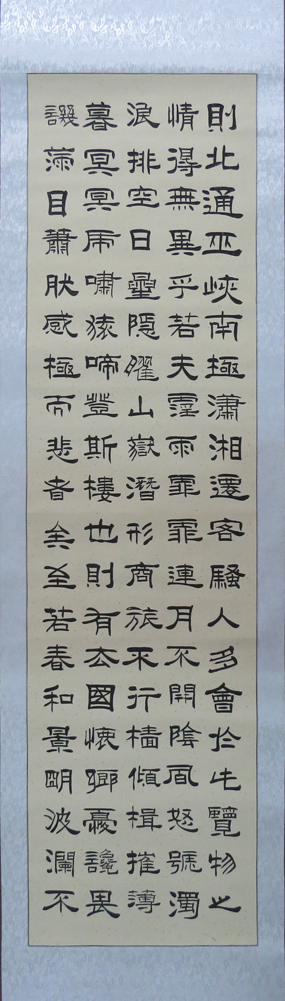 則北通巫峽南極瀟湘遷客騷人多會於此覽物之
情得無異乎若夫霪雨霏霏連月不開陰風怒號濁
浪排空日星隱耀山嶽潛形商旅不行檣傾楫摧薄
暮冥冥虎嘯猿啼登斯樓也則有去國懷鄉憂讒畏
譏滿目蕭然感極而悲者矣至若春和景明波瀾不